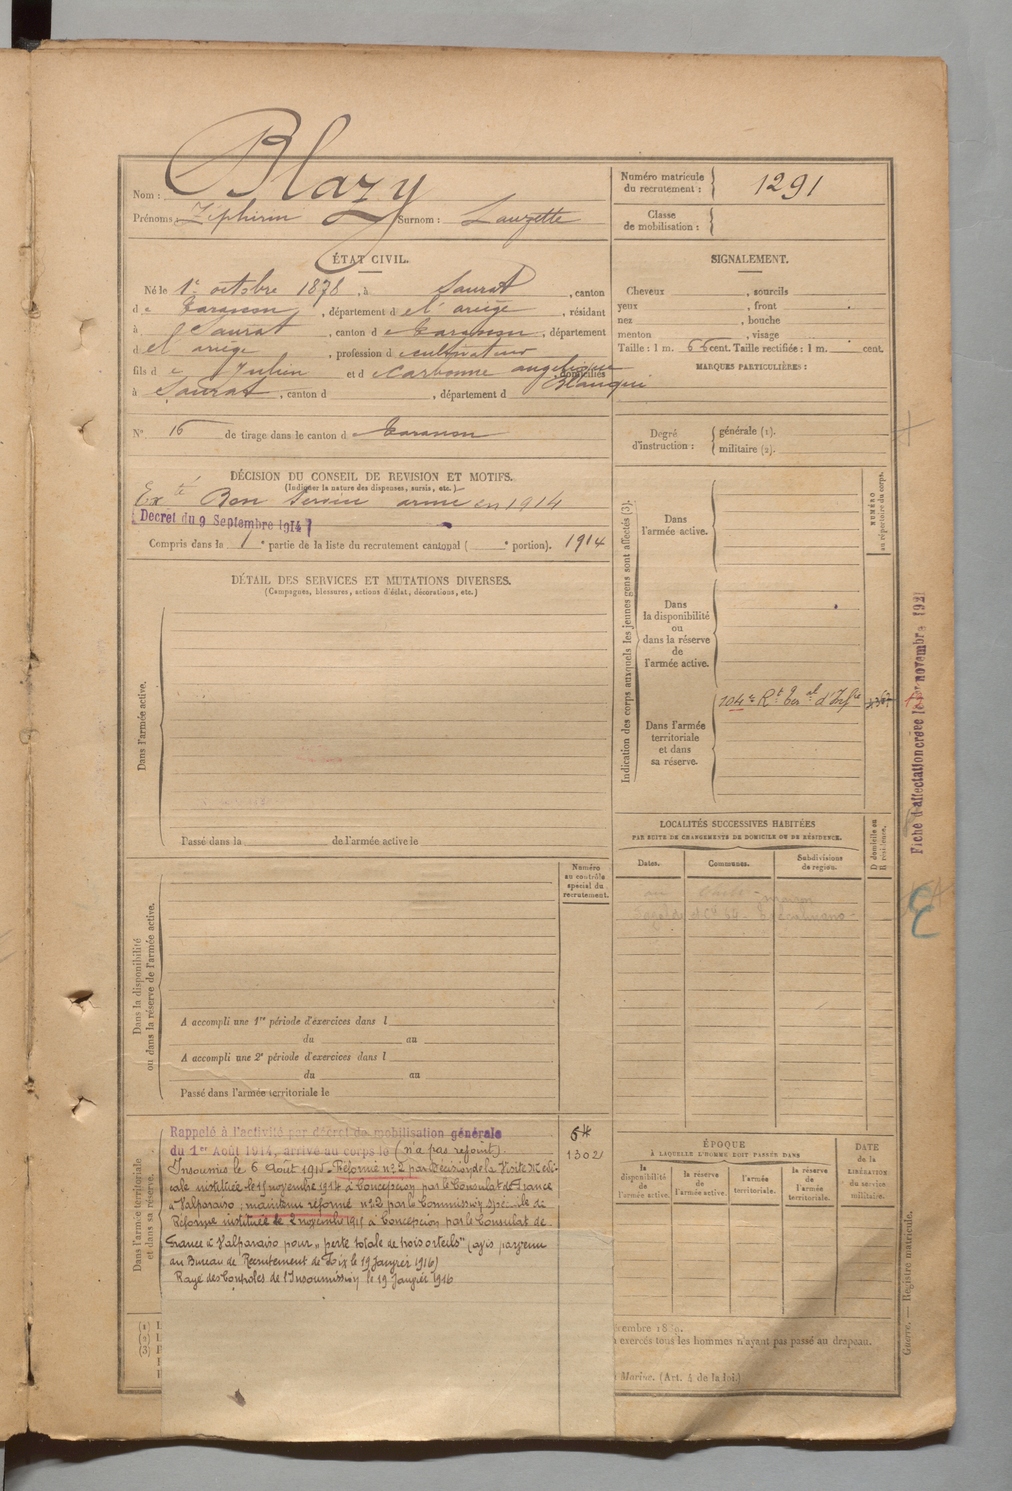 Nom : Blazy
Prénoms : Zéphirin Surnom : Lauzette
Numéro matricule
du recrutement : 1291
Classe
de mobilisation :
ÉTAT CIVIL.
Né le 1er octobre 1878, à Saurat, canton
de Tarascon, département de l'ariège, résidant
à Saurat, canton de Tarascon, département
de l'ariège, profession de cultivateur
fils de Julien et de Carbonne angelique Blanqui domiciliés
à Saurat, canton d , département d
N° 16 de tirage dans le canton de Tarascon
SIGNALEMENT.
Cheveux , sourcils
yeux , front
nez , bouche
menton , visage
Taille : 1 m. 66 cent. Taille rectifiée : 1 m. cent.
MARQUES PARTICULIÈRES :
Degré
d'instruction :
générale (1).
militaire (2).
DÉCISION DU CONSEIL DE REVISION ET MOTIFS.
(Indiquer la nature des dispenses, sursis, etc.)
Exté Bon Service armé en 1914
Decret du 9 Septembre 1914
Compris dans la 1e partie de la liste du recrutement cantonal ( e portion). 1914
DÉTAIL DES SERVICES ET MUTATIONS DIVERSES.
(Campagnes, blessures, actions d'éclat, décorations, etc.)
Dans l'armée active.
Passé dans la de l'armée active le
Indication des corps auxquels les jeunes gens sont affectés (3).
Dans
l'armée active.
Dans
la disponibilité
ou
dans la réserve
de
l'armée active.
104e Rt Teral d'Infie
Dans l'armée
territoriale
et dans
sa réserve.
NUMÉRO
au répertoire du corps.
Fiche d'affectation créée le 1er novembre 1921
LOCALITÉS SUCCESSIVES HABITÉES
PAR SUITE DE CHANGEMENTS DE DOMICILE OU DE RÉSIDENCE.
Dates.
Communes.
Subdivisions
de région.
D domicile ou
R résidence.
au Chili
Numéro
au contrôle
spécial du
recrutement.
Dans la disponibilité
ou dans la réserve de l'armée active.
A accompli une 1re période d'exercices dans l
du au
A accompli une 2e période d'exercices dans l
du au
Passé dans l'armée territoriale le
Dans l'armée territoriale
et dans sa réserve.
Rappelé à l'activité par décret de mobilisation générale
du 1er Août 1914, arrivé au corps le (n'a pas rejoint).
Insoumis le 6 Août 1915. Réformé n° 2 par Décision de la Visite Médi-
cale instituée le 15 novembre 1914 à Concepcion par le Consulat de France
à Valparaiso ; maintenu réformé n° 2 par la Commission spéciale de
Réforme instituée le 2 novembre 1915 à Concepcion par le Consulat de
France à Valparaiso pour "perte totale de trois orteils" (avis parvenu
au Bureau de Recrutement de Foix le 19 Janvier 1916)
Rayé des Controles de l'Insoumission le 19 Janvier 1916
1302
ÉPOQUE
À LAQUELLE L'HOMME DOIT PASSER DANS
la
disponibilité
de
l'armée active.
la réserve
de
l'armée active.
l'armée
territoriale.
la réserve
de
l'armée
territoriale.
DATE
de la
LIBÉRATION
du service
militaire.
(1)
(2)
(3)
exercés tous les hommes n'ayant pas passé au drapeau.
Marine. (Art. 4 de la loi.)
Guerre. — Registre matricule.